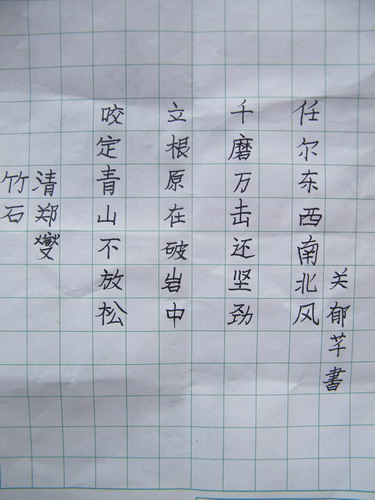 竹石
清郑燮
咬定青山不放松
立根原在破岩中
千磨万击还坚劲
任尔东西南北风
关郁芊書